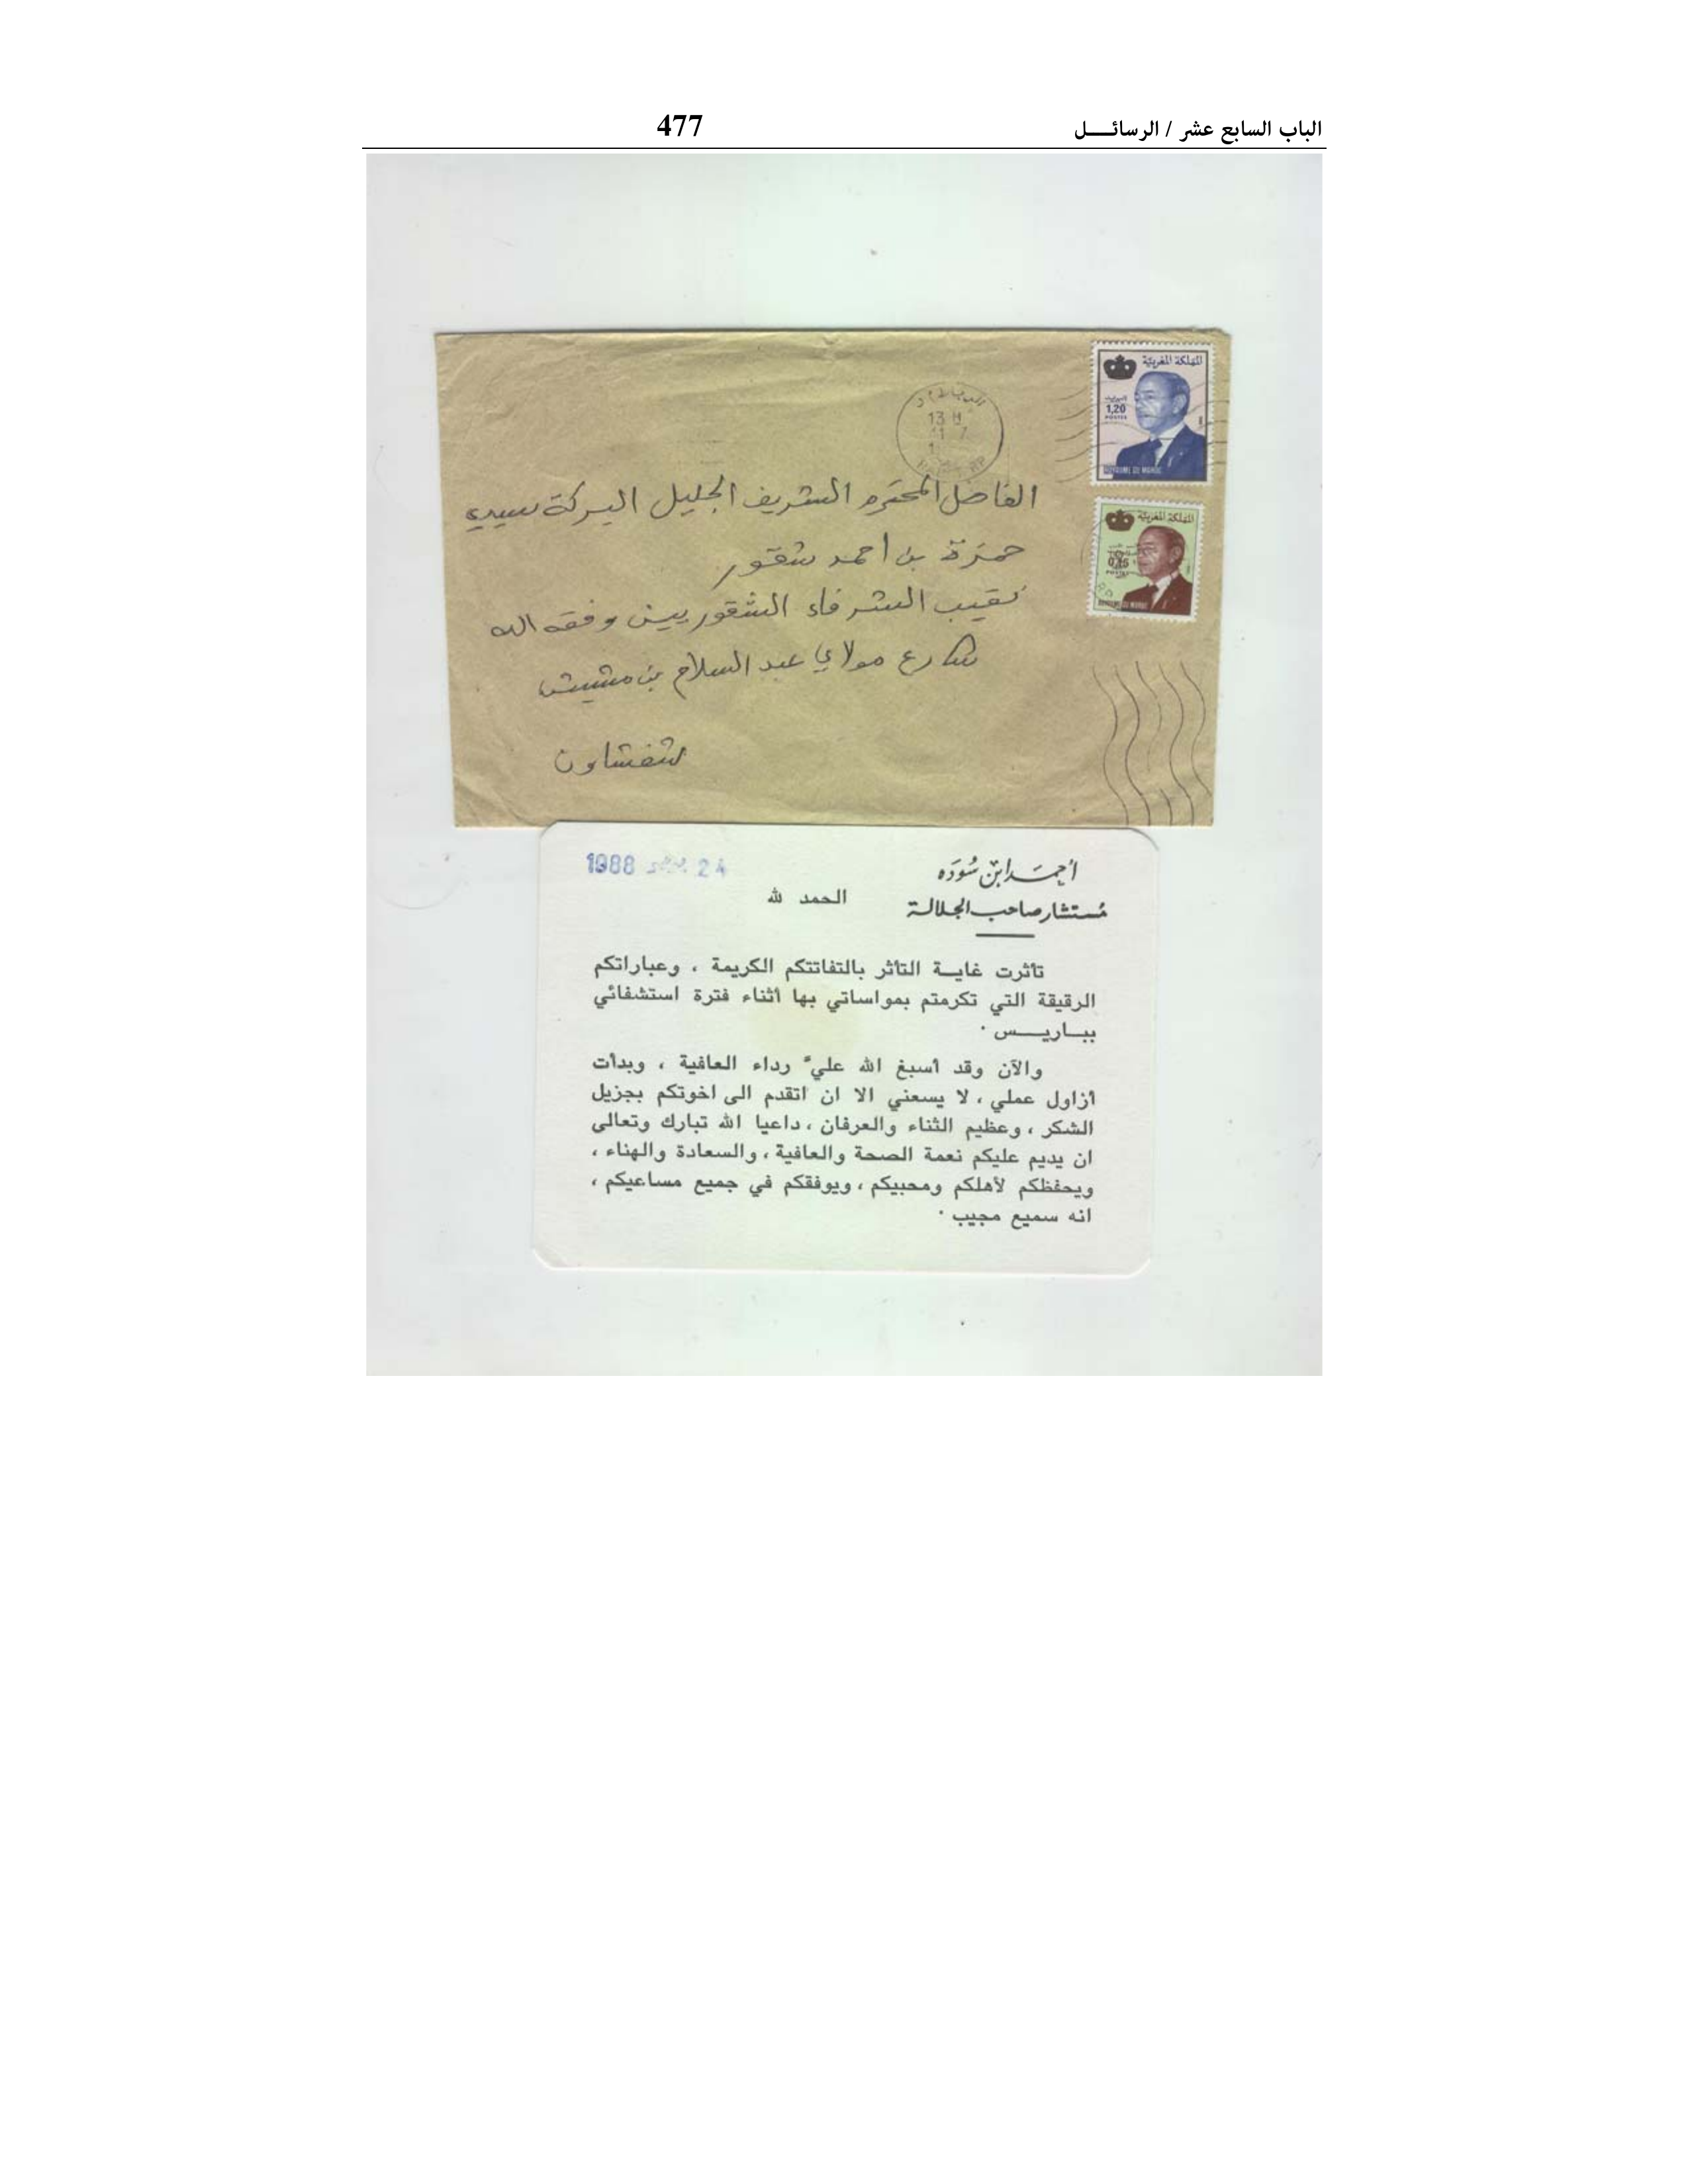 الباب السابع عشر / الرسائــــل 477
المملكة المغربية
1,20
POSTES
ROYAUME DU MAROC
المملكة المغربية
POSTES
ROYAUME DU MAROC
13 H
الفاضل المحترم الشريف الجليل البركة سيدي
حمزة بن احمد شقور
نقيب الشرفاء الشقوريين وفقه الله
شارع مولاي عبد السلام بن مشيش
شفشاون
أحمد ابن سُودَه
مُستشار صاحب الجلالة
24 1988
الحمد لله
تأثرت غايــة التأثر بالتفاتتكم الكريمة ، وعباراتكم
الرقيقة التي تكرمتم بمواساتي بها أثناء فترة استشفائي
ببــاريـــس .
والآن وقد أسبغ الله عليّ رداء العافية ، وبدأت
أزاول عملي ، لا يسعني الا ان أتقدم الى اخوتكم بجزيل
الشكر ، وعظيم الثناء والعرفان ، داعيا الله تبارك وتعالى
ان يديم عليكم نعمة الصحة والعافية ، والسعادة والهناء ،
ويحفظكم لأهلكم ومحبيكم ، ويوفقكم في جميع مساعيكم ،
انه سميع مجيب .